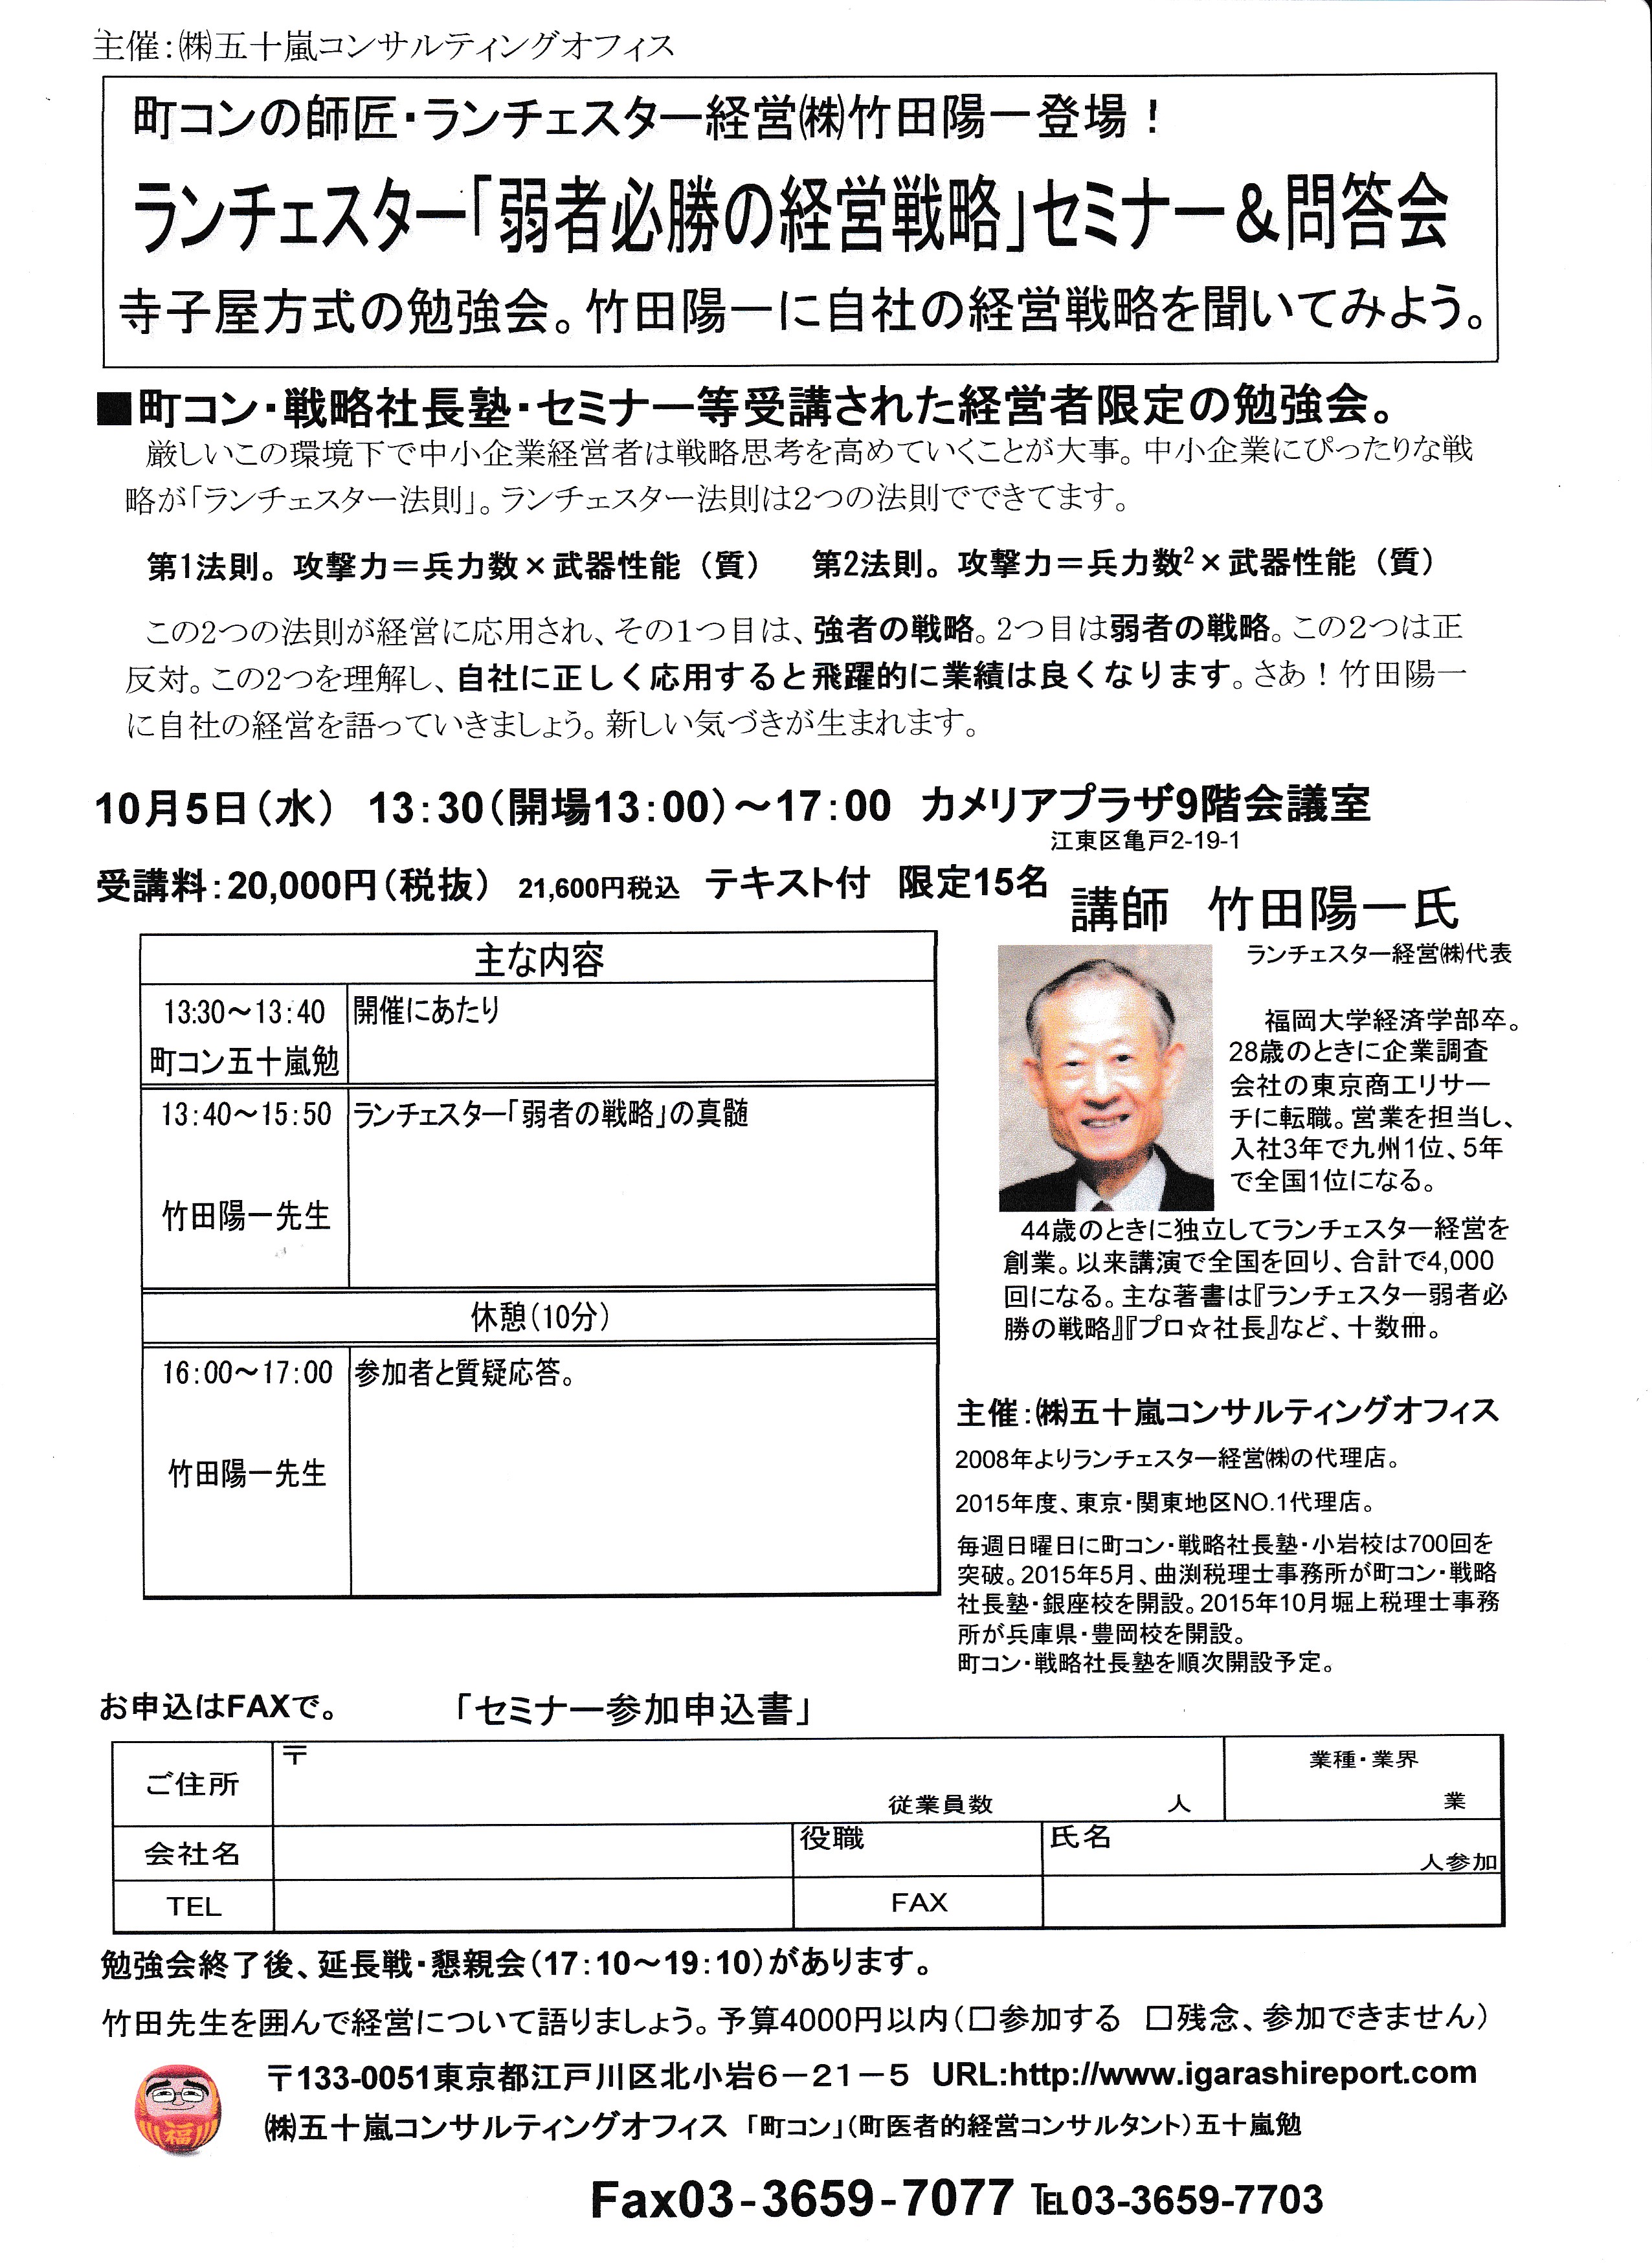 主催：㈱五十嵐コンサルティングオフィス
町コンの師匠・ランチェスター経営㈱竹田陽一登場！
ランチェスター「弱者必勝の経営戦略」セミナー＆問答会
寺子屋方式の勉強会。竹田陽一に自社の経営戦略を聞いてみよう。
■町コン・戦略社長塾・セミナー等受講された経営者限定の勉強会。
厳しいこの環境下で中小企業経営者は戦略思考を高めていくことが大事。中小企業にぴったりな戦
略が「ランチェスター法則」。ランチェスター法則は２つの法則でできてます。
第1法則。攻撃力＝兵力数×武器性能（質）　第2法則。攻撃力＝兵力数²×武器性能（質）
この2つの法則が経営に応用され、その１つ目は、強者の戦略。2つ目は弱者の戦略。この２つは正
反対。この2つを理解し、自社に正しく応用すると飛躍的に業績は良くなります。さあ！竹田陽一
に自社の経営を語っていきましょう。新しい気づきが生まれます。
10月5日（水）　13：30（開場13：00）～17：00　カメリアプラザ9階会議室
江東区亀戸2-19-1
受講料：20,000円（税抜）　21,600円税込　テキスト付　限定15名
講師　竹田陽一氏
ランチェスター経営㈱代表
主な内容
13:30～13：40　開催にあたり
町コン五十嵐勉
13：40～15：50　ランチェスター「弱者の戦略」の真髄
竹田陽一先生
休憩（10分）
16：00～17：00　参加者と質疑応答。
竹田陽一先生
福岡大学経済学部卒。
28歳のときに企業調査
会社の東京商工リサー
チに転職。営業を担当し、
入社3年で九州1位、5年
で全国1位になる。
44歳のときに独立してランチェスター経営を
創業。以来講演で全国を回り、合計で4,000
回になる。主な著書は『ランチェスター弱者必
勝の戦略』『プロ☆社長』など、十数冊。
主催：㈱五十嵐コンサルティングオフィス
2008年よりランチェスター経営㈱の代理店。
2015年度、東京・関東地区NO.1代理店。
毎週日曜日に町コン・戦略社長塾・小岩校は700回を
突破。2015年5月、曲渕税理士事務所が町コン・戦略
社長塾・銀座校を開設。2015年10月堀上税理士事務
所が兵庫県・豊岡校を開設。
町コン・戦略社長塾を順次開設予定。
お申込はFAXで。　「セミナー参加申込書」
ご住所　〒　従業員数　人　業種・業界　業
会社名　役職　氏名　人参加
TEL　FAX
勉強会終了後、延長戦・懇親会（17：10～19：10）があります。
竹田先生を囲んで経営について語りましょう。予算4000円以内（□参加する　□残念、参加できません）
〒133-0051東京都江戸川区北小岩６－２１－５　URL:http://www.igarashireport.com
㈱五十嵐コンサルティングオフィス　「町コン」（町医者的経営コンサルタント）五十嵐勉
福
Fax03-3659-7077　℡03-3659-7703